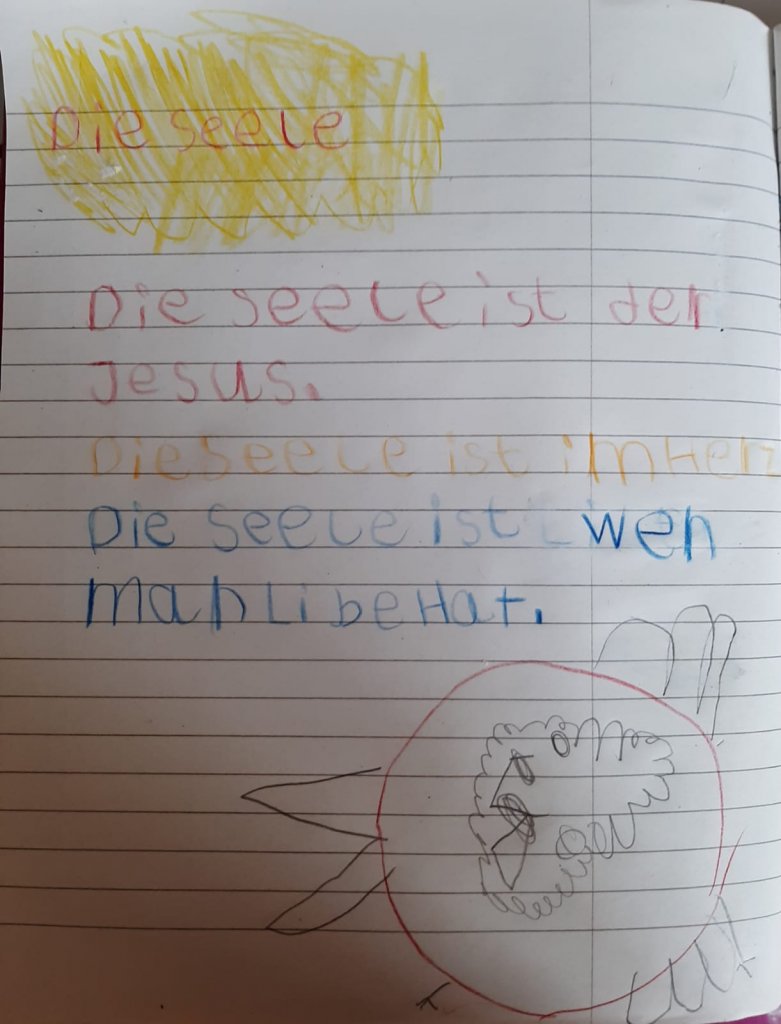 Die seele
Die seele ist der
Jesus.
Die seele ist im Herz
Die seele ist wen
man libe Hat.